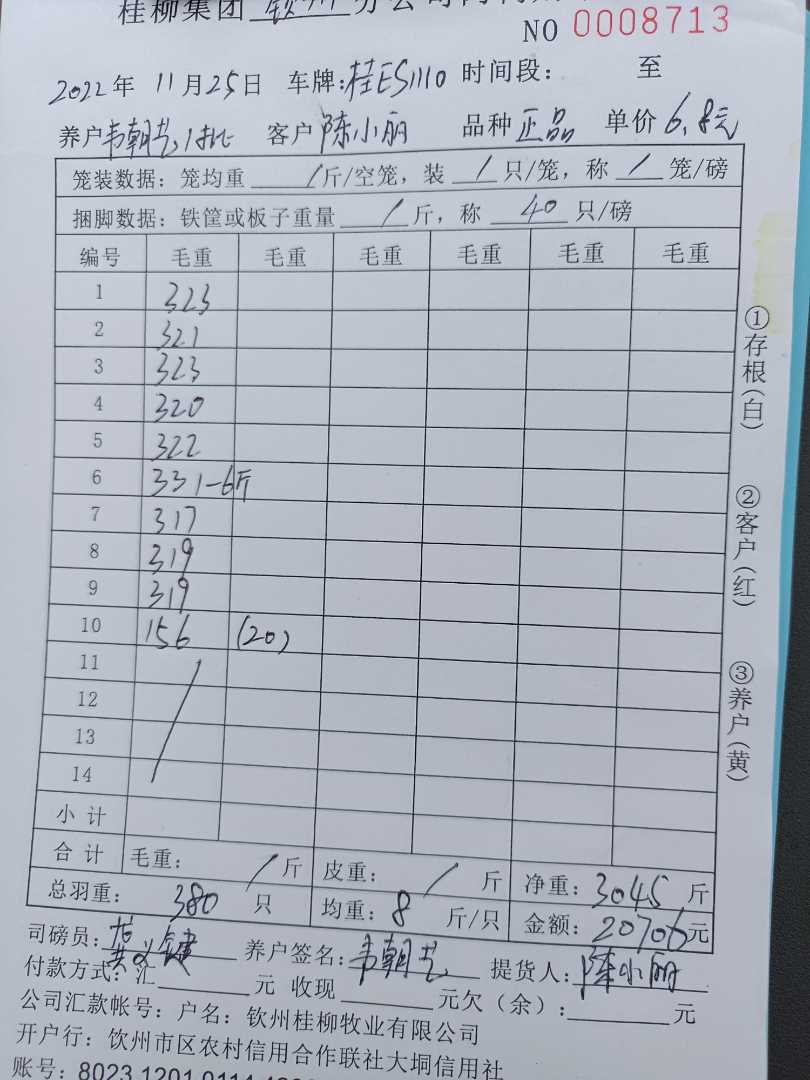 桂柳集团 钦州 分公司
NO 0008713
2022年 11月25日 车牌:桂ES1110 时间段: 至
养户 韦朝艺 1批 客户 陈小丽 品种 正品 单价 6.8元
笼装数据:笼均重 / 斤/空笼,装 / 只/笼,称 / 笼/磅
捆脚数据:铁筐或板子重量 / 斤,称 40 只/磅
编号 毛重 毛重 毛重 毛重 毛重 毛重
1 323
2 321
3 323
4 320
5 322
6 331-6斤
7 317
8 319
9 319
10 156 (20)
11
12
13
14
小计
合计 毛重: / 斤 皮重: / 斤 净重:3045 斤
总羽重: 380 只 均重:8 斤/只 金额:20706元
司磅员: 养户签名:韦朝艺 提货人:陈小丽
付款方式:汇 元 收现 元欠(余): 元
公司汇款帐号:户名:钦州桂柳牧业有限公司
开户行:钦州市区农村信用合作联社大垌信用社
账号:8023 1201 0114
①存根(白) ②客户(红) ③养户(黄)